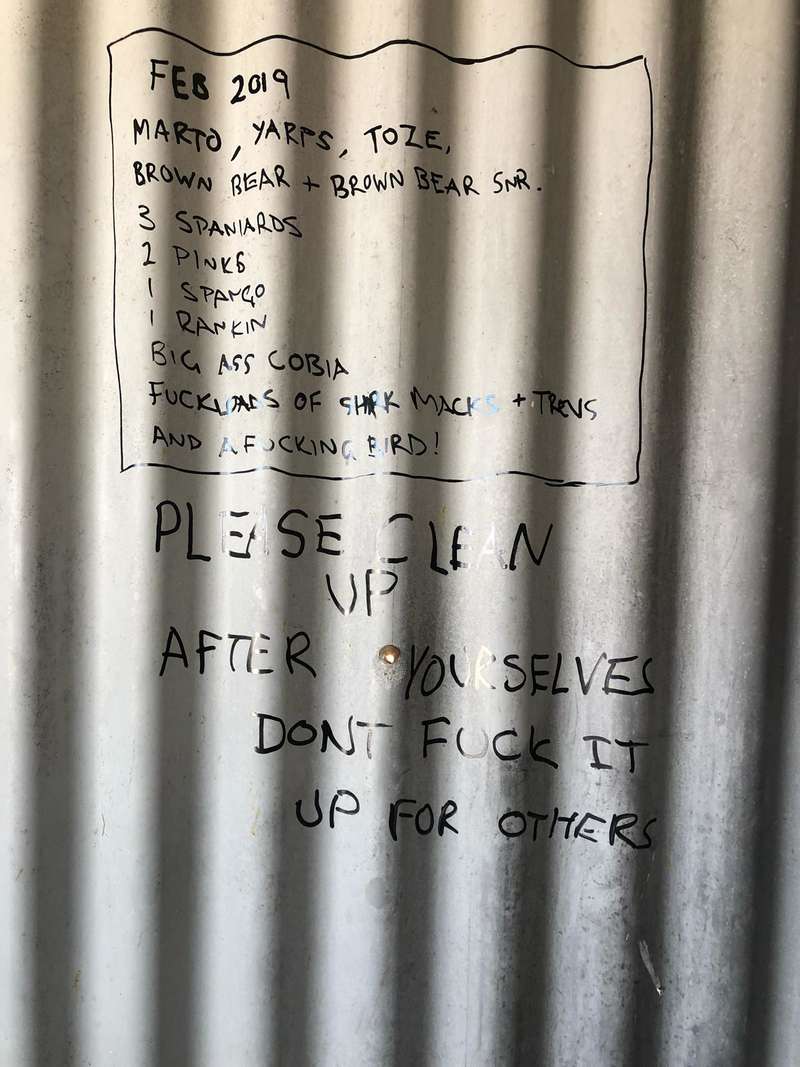 FEB 2019
MARTO, YARPS, TOZE,
BROWN BEAR + BROWN BEAR SNR.
3 SPANIARDS
2 PINKS
1 SPANGO
1 RANKIN
BIG ASS COBIA
FUCKLOADS OF SHARK MACKS + TREVS
AND A FUCKING BIRD!
PLEASE CLEAN
UP
AFTER YOURSELVES
DONT FUCK IT
UP FOR OTHERS